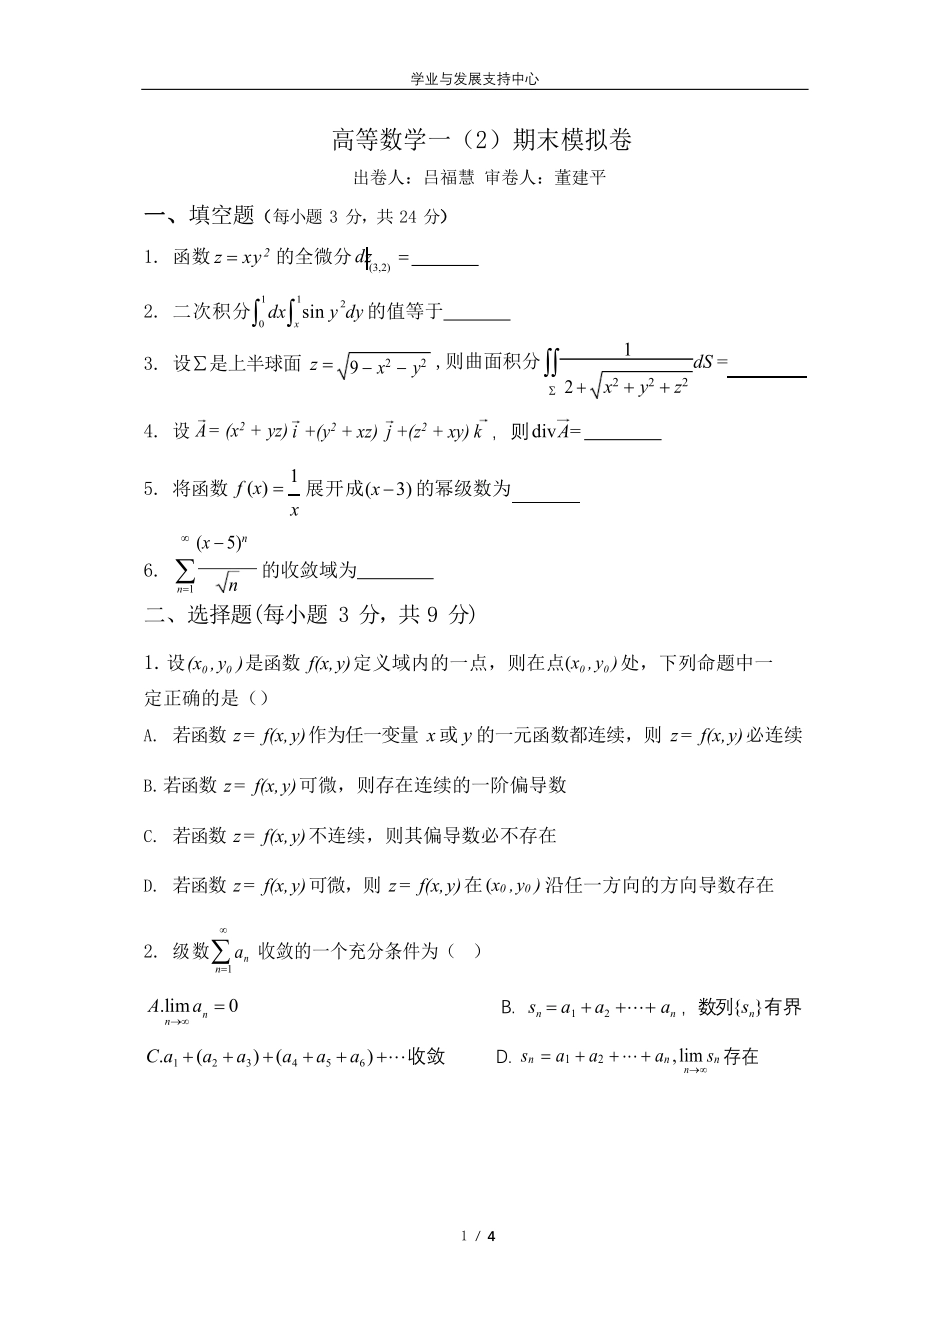 学业与发展支持中心
高等数学一（2）期末模拟卷
出卷人：吕福慧 审卷人：董建平
一、填空题（每小题 3 分，共 24 分）
1. 函数 z = xy² 的全微分 dz|(3,2) = ______
2. 二次积分∫₀¹dx∫ₓ¹sin y²dy 的值等于______
3. 设∑是上半球面 z = √(9 − x² − y²) ,则曲面积分∬_Σ 1/(2 + √(x² + y² + z²)) dS = ______
4. 设 A⃗ = (x² + yz) i⃗ +(y² + xz) j⃗ +(z² + xy) k⃗ ，则divA⃗= ______
5. 将函数 f (x) = 1/x 展开成(x − 3) 的幂级数为______
6. ∑_{n=1}^{∞} (x − 5)ⁿ/√n 的收敛域为______
二、选择题(每小题 3 分，共 9 分)
1. 设(x₀ , y₀ )是函数 f(x,y)定义域内的一点，则在点(x₀ , y₀)处，下列命题中一
定正确的是（）
A. 若函数 z = f(x,y)作为任一变量 x 或 y 的一元函数都连续，则 z = f(x,y)必连续
B.若函数 z = f(x,y)可微，则存在连续的一阶偏导数
C. 若函数 z = f(x,y)不连续，则其偏导数必不存在
D. 若函数 z = f(x,y)可微，则 z = f(x,y)在 (x₀ , y₀ ) 沿任一方向的方向导数存在
2. 级数∑_{n=1}^{∞} aₙ 收敛的一个充分条件为（ ）
A.lim_{n→∞} aₙ = 0 B. sₙ = a₁ + a₂ + ⋯ + aₙ ，数列{sₙ}有界
C.a₁ + (a₂ + a₃) + (a₄ + a₅ + a₆) + ⋯收敛 D. sₙ = a₁ + a₂ + ⋯ + aₙ , lim_{n→∞} sₙ 存在
1 / 4